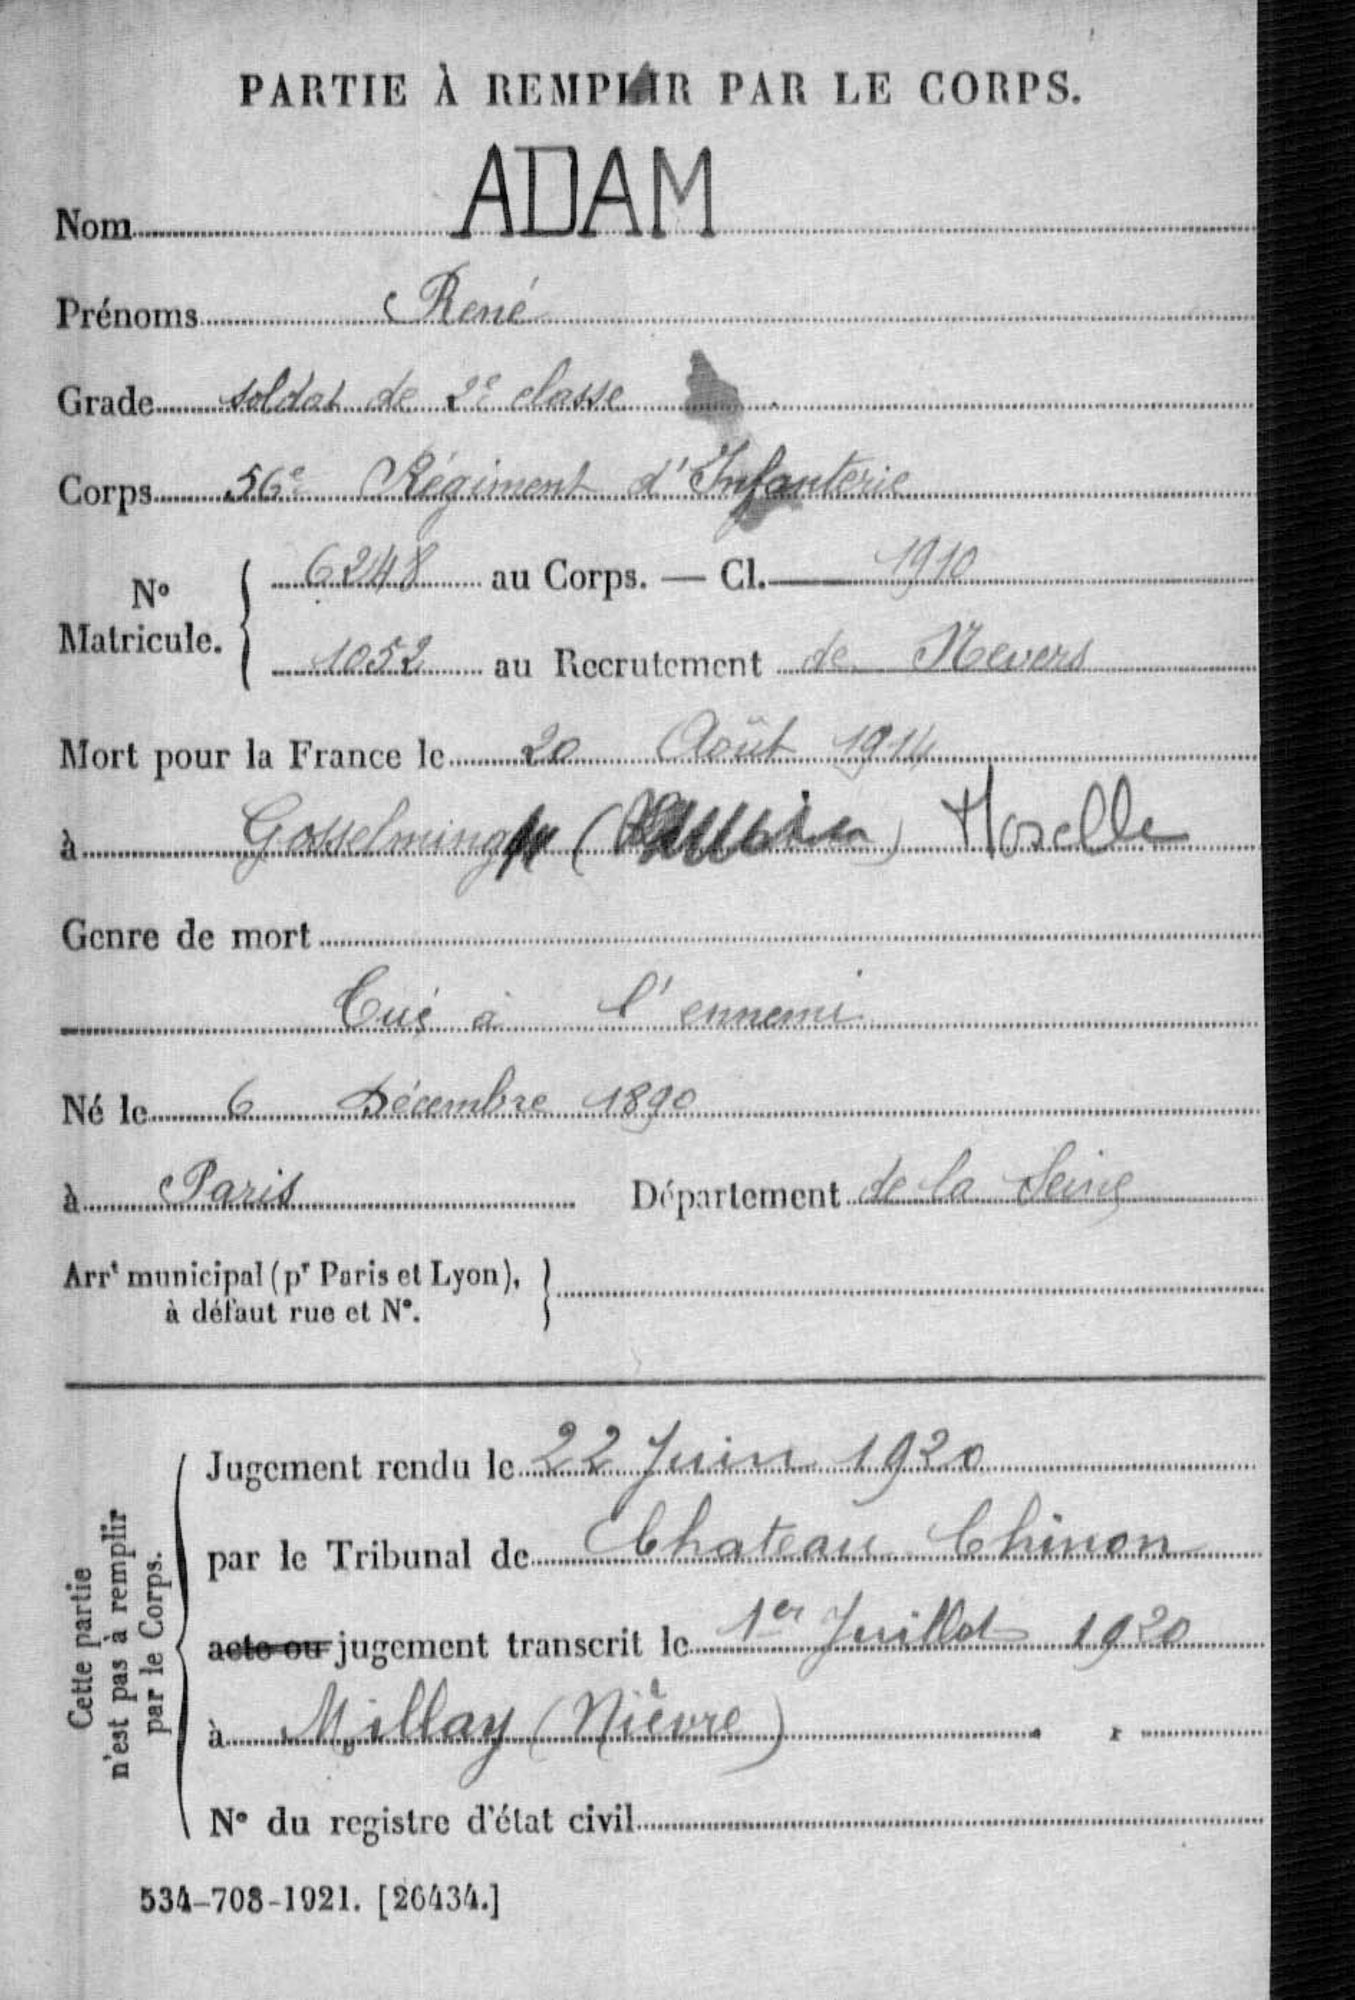 PARTIE À REMPLIR PAR LE CORPS.
Nom ADAM
Prénoms René
Grade soldat de 2e classe
Corps 56e Régiment d'Infanterie
No Matricule.
6248 au Corps. — Cl. 1910
1052 au Recrutement de Nevers
Mort pour la France le 20 Août 1914
à Gosselming ( ) Moselle
Genre de mort
Tué à l'ennemi
Né le 6 Décembre 1890
à Paris Département de la Seine
Arrt municipal (pr Paris et Lyon),
à défaut rue et No.
Cette partie
n'est pas à remplir
par le Corps.
Jugement rendu le 22 Juin 1920
par le Tribunal de Chateau Chinon
acte ou jugement transcrit le 1er Juillet 1920
à Millay (Nièvre)
No du registre d'état civil
534-708-1921. [26434.]